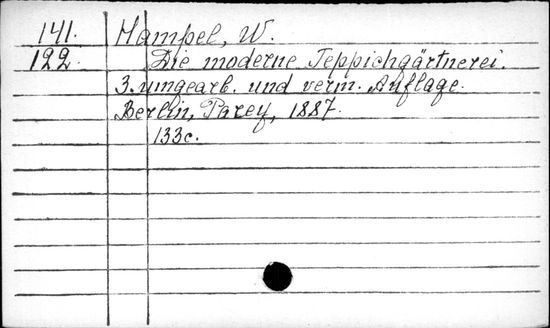 141. Hampel, W.
122. Die moderne Teppichgärtnerei.
3. umgearb. und verm. Auflage.
Berlin, Parey, 1887.
133c.